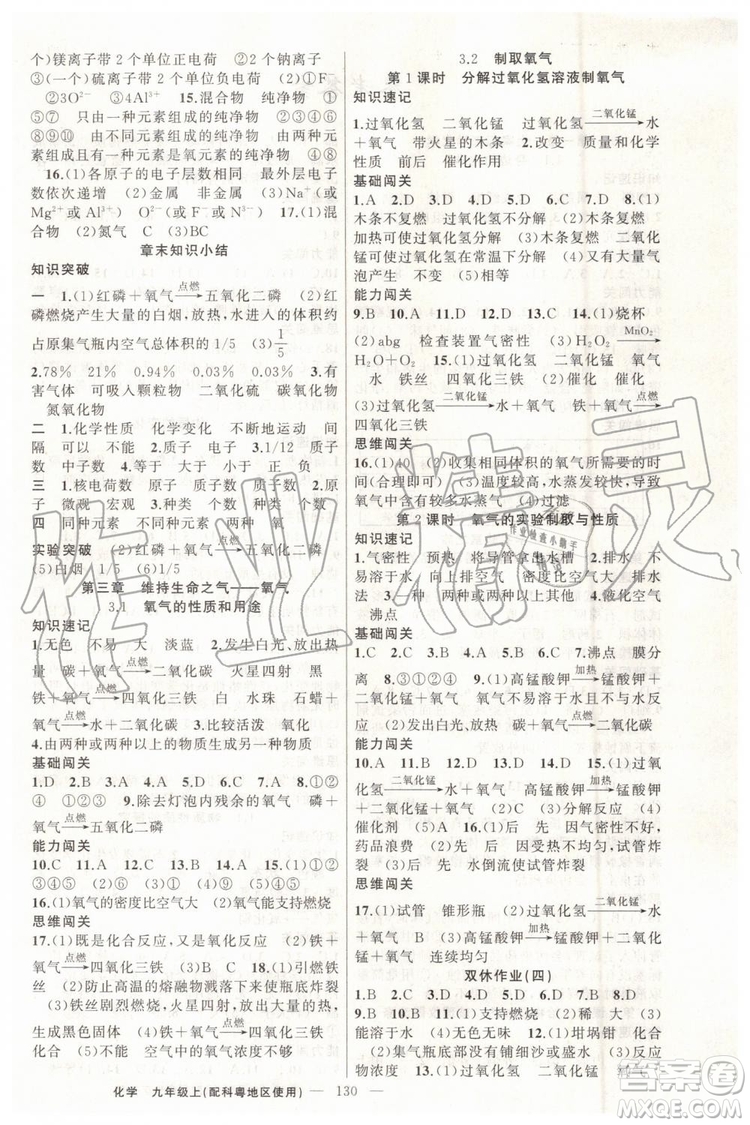 个)镁离子带 2 个单位正电荷 ②2 个钠离子
③(一个)硫离子带 2 个单位负电荷 (2)①F
②3O²⁻ ③2OH⁻ ④4Al³⁺ 15.混合物 纯净物
①②⑤⑦ 只由一种元素组成的纯净物 ③④⑥
⑧⑨⑩ 由不同元素组成的纯净物 ④⑥ 由两种元
素组成且其中一种元素是氧元素的纯净物
16.(1)各原子的电子层数相同 最外层电子
数依次递增 (2)金属 非金属 (3)Na⁺(或
Mg²⁺或 Al³⁺) O²⁻(或 F⁻或 N³⁻) 17.(1)混
合物 (2)氮气 (3)C (3)BC
章末知识小结
知识突破
一 1.(1)红磷＋氧气 点燃→ 五氧化二磷 (2)红
磷燃烧产生大量的白烟,放热,水进入的体积约
占原集气瓶内空气总体积的 1/5 (3)1/5
2.78% 21% 0.94% 0.03% 0.03% 3.有
害气体 可吸入颗粒物 二氧化硫 碳氧化物
氮氧化物
二 1.化学性质 化学变化 不断地运动 间
隔 可以 不能 2.质子 电子 3.1/12 质子
数 中子数 4.等于 大于 小于 正 负
三 1.核电荷数 质子数 种类 2.质子数 原
子 微观 宏观 种类 个数 种类 个数
四 同种元素 不同种元素 两种 氧
实验突破 (2)②①④③
(5)白烟 1/5 (6)小于 1/5
第三章 维持生命之气——氧气
3.1 氧气的性质和用途
知识速记
1.无色 不易 大 淡蓝 2.发生白光、放出热
量 碳＋氧气 点燃→ 二氧化碳 火星四射 黑
铁＋氧气 点燃→ 四氧化三铁 白 水珠 石蜡＋
氧气 点燃→ 水＋二氧化碳 3.比较活泼 氧化
4.由两种或两种以上的物质生成另一种物质
基础闯关
1.D 2.A 3.B 4.D 5.D 6.D 7.B 8.①②
④ ①②③ 9.除去灯泡内残余的氧气 磷＋
氧气 点燃→ 五氧化二磷
能力闯关
10.C 11.A 12.C 13.D 14.D 15.(1)①②
③④⑤ (2)②③
16.(1)氧气的密度比空气大 (2)氧气能支持燃烧
思维闯关
17.(1)既是化合反应,又是氧化反应 (2)铁＋
氧气 点燃→ 四氧化三铁 (3)B C 18.(1)引燃铁
丝 (2)防止高温的熔融物溅落下来使瓶底炸裂
(3)铁丝剧烈燃烧,火星四射,放出大量的热,
生成黑色固体 (4)铁＋氧气 点燃→ 四氧化三铁
化合 (5)空气中氧气的浓度不够
3.2 制取氧气
第 1 课时 分解过氧化氢溶液制氧气
知识速记
1.过氧化氢 二氧化锰 过氧化氢 二氧化锰→ 水
＋氧气 带火星的木条 2.改变 质量和化学
性质 前后 催化作用
基础闯关
1.A 2.D 3.D 4.B 5.D 6.C 7.D 8.(1)
木条不复燃 过氧化氢不分解 (2)木条复燃
加热可使过氧化氢分解 (3)木条复燃 二氧化
锰可使过氧化氢在常温下分解 (4)大量气
泡产生 不变 (5)相等
能力闯关
9.B 10.A 11.B 12.D 13.A 14.(1)烧杯
(2)abg 检查装置气密性 (3)H₂O₂ MnO₂→
H₂O＋O₂ 15.(1)过氧化氢 二氧化锰 氧气
水 铁丝 四氧化三铁 (2)催化 催化
(3)过氧化氢 二氧化锰→ 水＋氧气 铁＋氧气 点燃→
四氧化三铁
思维闯关
16.(1)40 (2)收集相同体积的氧气所需要的时
间(合理即可) (3)温度较高,水蒸发较快,导致
氧气中含有较多水蒸气 (4)过滤
第 2 课时 氧气的实验制取与性质
知识速记
1.气密性 预热 将导管拿出水槽 2.难(或不
易)溶于水 向上排空气 密度比空气大 排水
法 3.一种 两种或两种以上 4.液化空气
沸点
基础闯关
1.C 2.C 3.B 4.D 5.A 6.D 7.沸点 分
离 8.③①②④ 9.(1)高锰酸钾 加热→ 锰酸钾＋
二氧化锰＋氧气 氧气不易溶于水且不与水反
应 (2)发出白光、放热 碳＋氧气 点燃→ 二氧化碳
能力闯关
10.A 11.A 12.D 13.D 14.D 15.(1)过氧
化氢 二氧化锰→ 水＋氧气 高锰酸钾 加热→ 锰酸钾
＋二氧化锰＋氧气 (2)①③ (3)分解反应 (4)
催化剂 (5)A 16.(1)氧气浓度小 产气过快,
药品浪费 (2)后 先 (3)受热不均,使试管炸
裂 (4)前 后 先 水倒流使试管炸裂
思维闯关
17.(1)试管 锥形瓶 (2)过氧化氢 二氧化锰→ 水
＋氧气 B F (3)高锰酸钾 加热→ 锰酸钾＋二氧
化锰＋氧气 连续均匀
双休作业(四)
1.B 2.C 3.D 4.D 5.D 6.D 7.C 8.B
9.B 10.B 11.(1)支持燃烧 (2)稀 大 (3)
能溶于水 (4)无色无味 12.(1)坩埚钳 化合
(2)集气瓶底部没有放少量水或铺一层细沙
13.(1)①⑤⑥ ②③④⑦⑧ (2)②⑦
化学 九年级上(配科粤地区使用) — 130 —
作业精灵
作业检查小助手